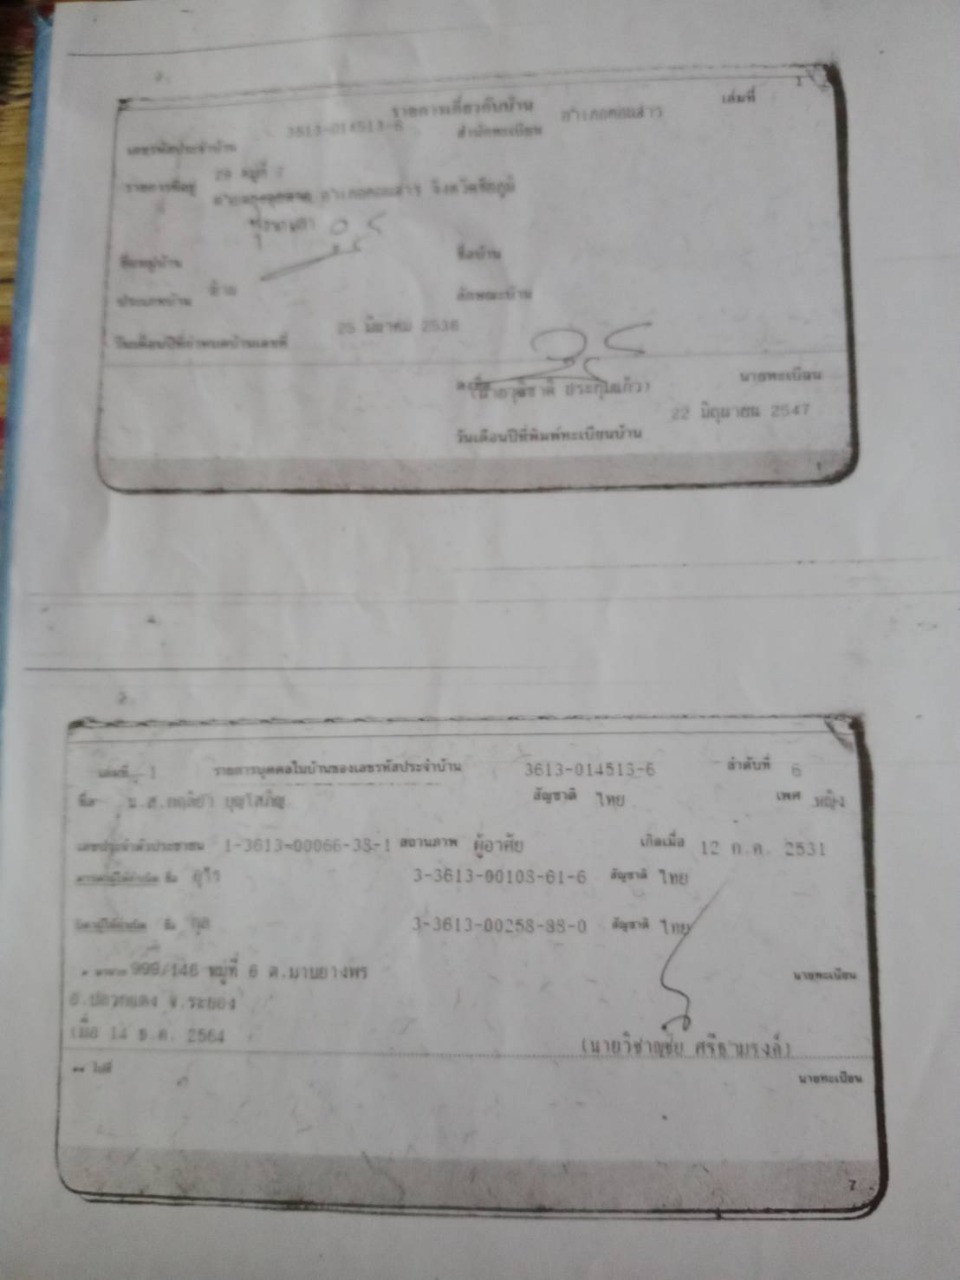 เล่มที่ 1
รายการเกี่ยวกับบ้าน
เลขรหัสประจำบ้าน 3613-014513-6 สำนักทะเบียน อำเภอคอนสาร
รายการที่อยู่ 29 หมู่ที่
อำเภอคอนสาร จังหวัดชัยภูมิ
ชื่อหมู่บ้าน ชื่อบ้าน
ประเภทบ้าน บ้าน ลักษณะบ้าน
วันเดือนปีที่กำหนดบ้านเลขที่ 25 มีนาคม 2536
ลงชื่อ นายทะเบียน
22 มิถุนายน 2547
วันเดือนปีที่พิมพ์ทะเบียนบ้าน
เล่มที่ 1 รายการบุคคลในบ้านของเลขรหัสประจำบ้าน 3613-014513-6 ลำดับที่ 6
ชื่อ น.ส. บุญโสภิญ สัญชาติ ไทย เพศ หญิง
เลขประจำตัวประชาชน 1-3613-00066-38-1 สถานภาพ ผู้อาศัย เกิดเมื่อ 12 ก.ค. 2531
มารดาผู้ให้กำเนิด ชื่อ อุไร 3-3613-00108-61-6 สัญชาติ ไทย
บิดาผู้ให้กำเนิด ชื่อ 3-3613-00258-88-0 สัญชาติ ไทย
* มาจาก 999/146 หมู่ที่ 6 ต.มาบยางพร นายทะเบียน
อ.ปลวกแดง จ.ระยอง
เมื่อ 14 ธ.ค. 2564 (นายวิชาญชัย ศรีธามรงค์)
** ไปที่ นายทะเบียน
7